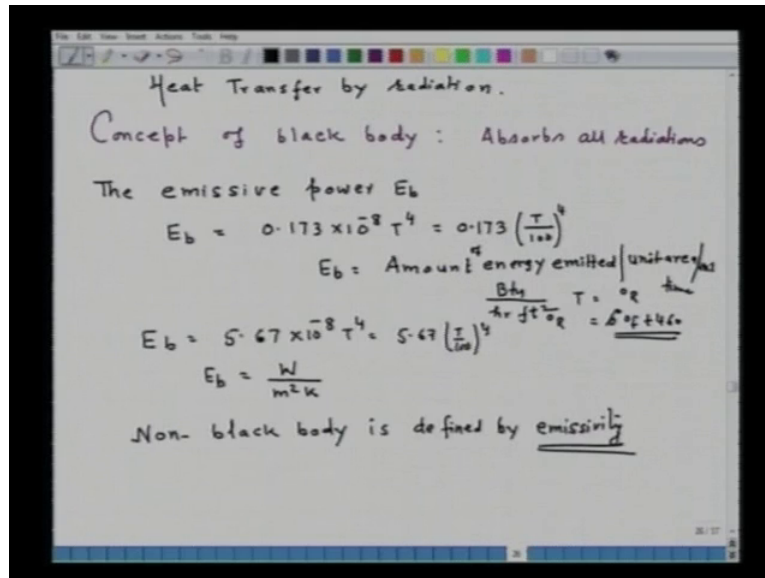 File Edit View Insert Actions Tools Help
Heat Transfer by radiation.
Concept of black body : Absorbs all radiations
The emissive power Eb
Eb = 0.173 x 10⁻⁸ T⁴ = 0.173 (T/100)⁴
Eb = Amount of energy emitted/unit area/
time
Btu/hr ft² °R T = °R
= °F + 460
Eb = 5.67 x 10⁻⁸ T⁴ = 5.67 (T/100)⁴
Eb = W/m² K
Non-black body is defined by emissivity
26/27
26